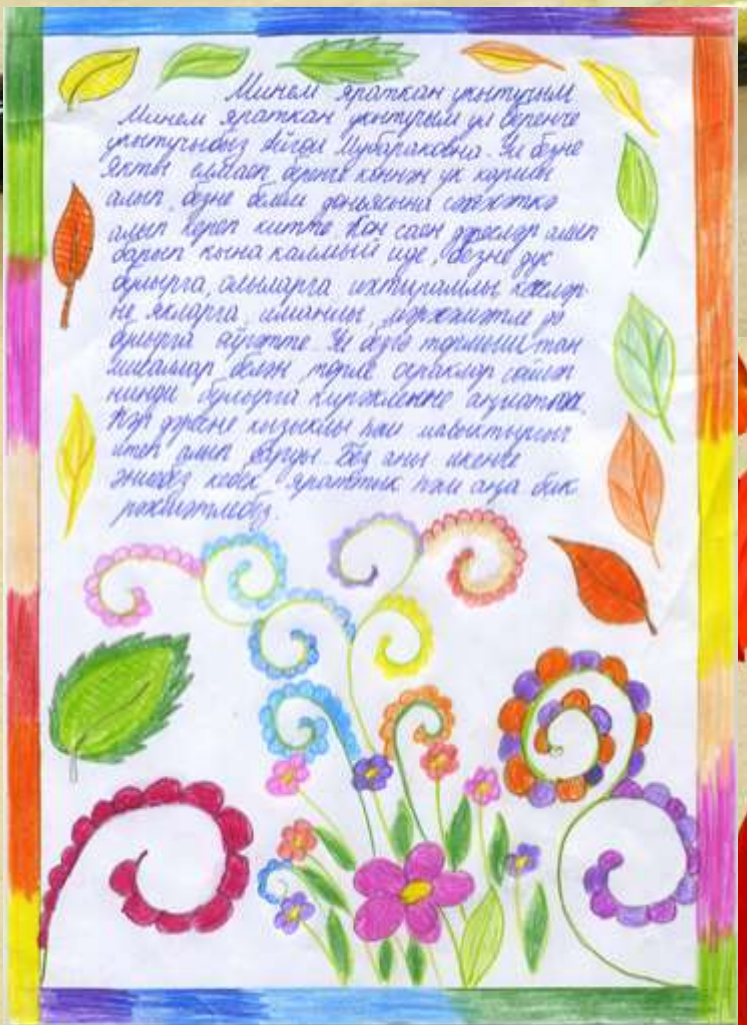 Минем яраткан укытучым
Минем яраткан укытучым ул беренче
укытучыбыз Айгөл Мубараковна. Ул безне
якты елмаеп беренче көннән үк каршы
алып, безне белем дөньясына сәяхәткә
алып кереп китте. Көн саен дәресләр алып
барып кына калмый иде, безне дус
булырга, олыларга ихтирамлы, кечеләр
не якларга, иманлы, мәрхәмәтле дә
булырга өйрәтте. Ул безгә тормыштан
мисаллар белән, төрле сораклар
нинди булырга кирәклекне аңлатты.
Һәр дәресне кызыклы һәм мавыктыргыч
итеп алып барды. Без аны икенче
әниебез кебек яраттык һәм аңа бик
рәхмәтлебез.